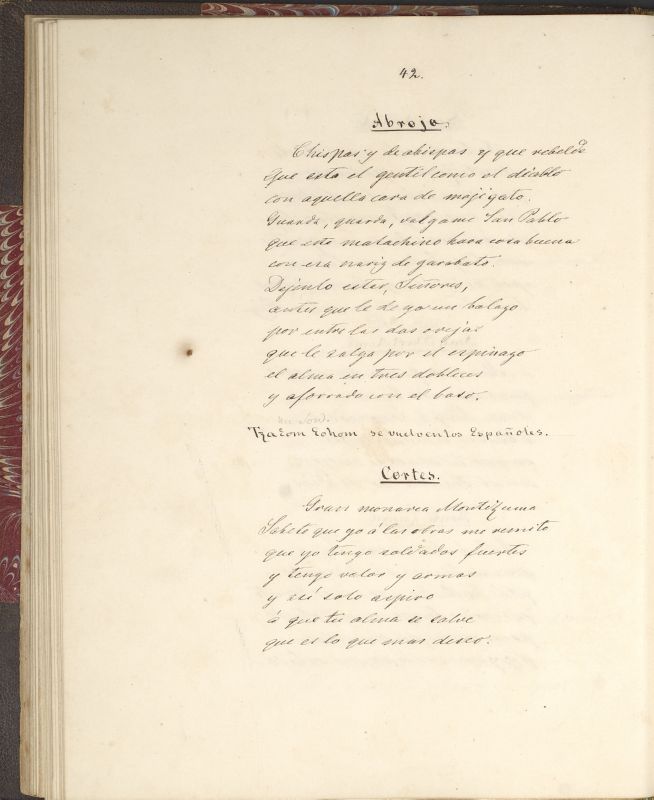 42.
Abrojo.
Chispas y de abispas y que rebelde
que esta el gentil como el diablo
con aquella cara de mojigato.
Guarda, guarda, valgame San Pablo
que este matachino hara cosa buena
con esa nariz de garabato.
Dejenlo estar, Señores,
antes que le de yo un balazo
por entre las dos orejas
que le salga por el espinazo
el alma en tres dobleces
y aforrada con el baso.
su Son.
Tzaeom Eohom se vuelven los Españoles.
Cortes.
Gran monarca Montezuma
Sabete que yo á las obras me remito
que yo tengo soldados fuertes
y tengo valor y armas
y así solo aspiro
á que tu alma se salve
que es lo que mas deseo.